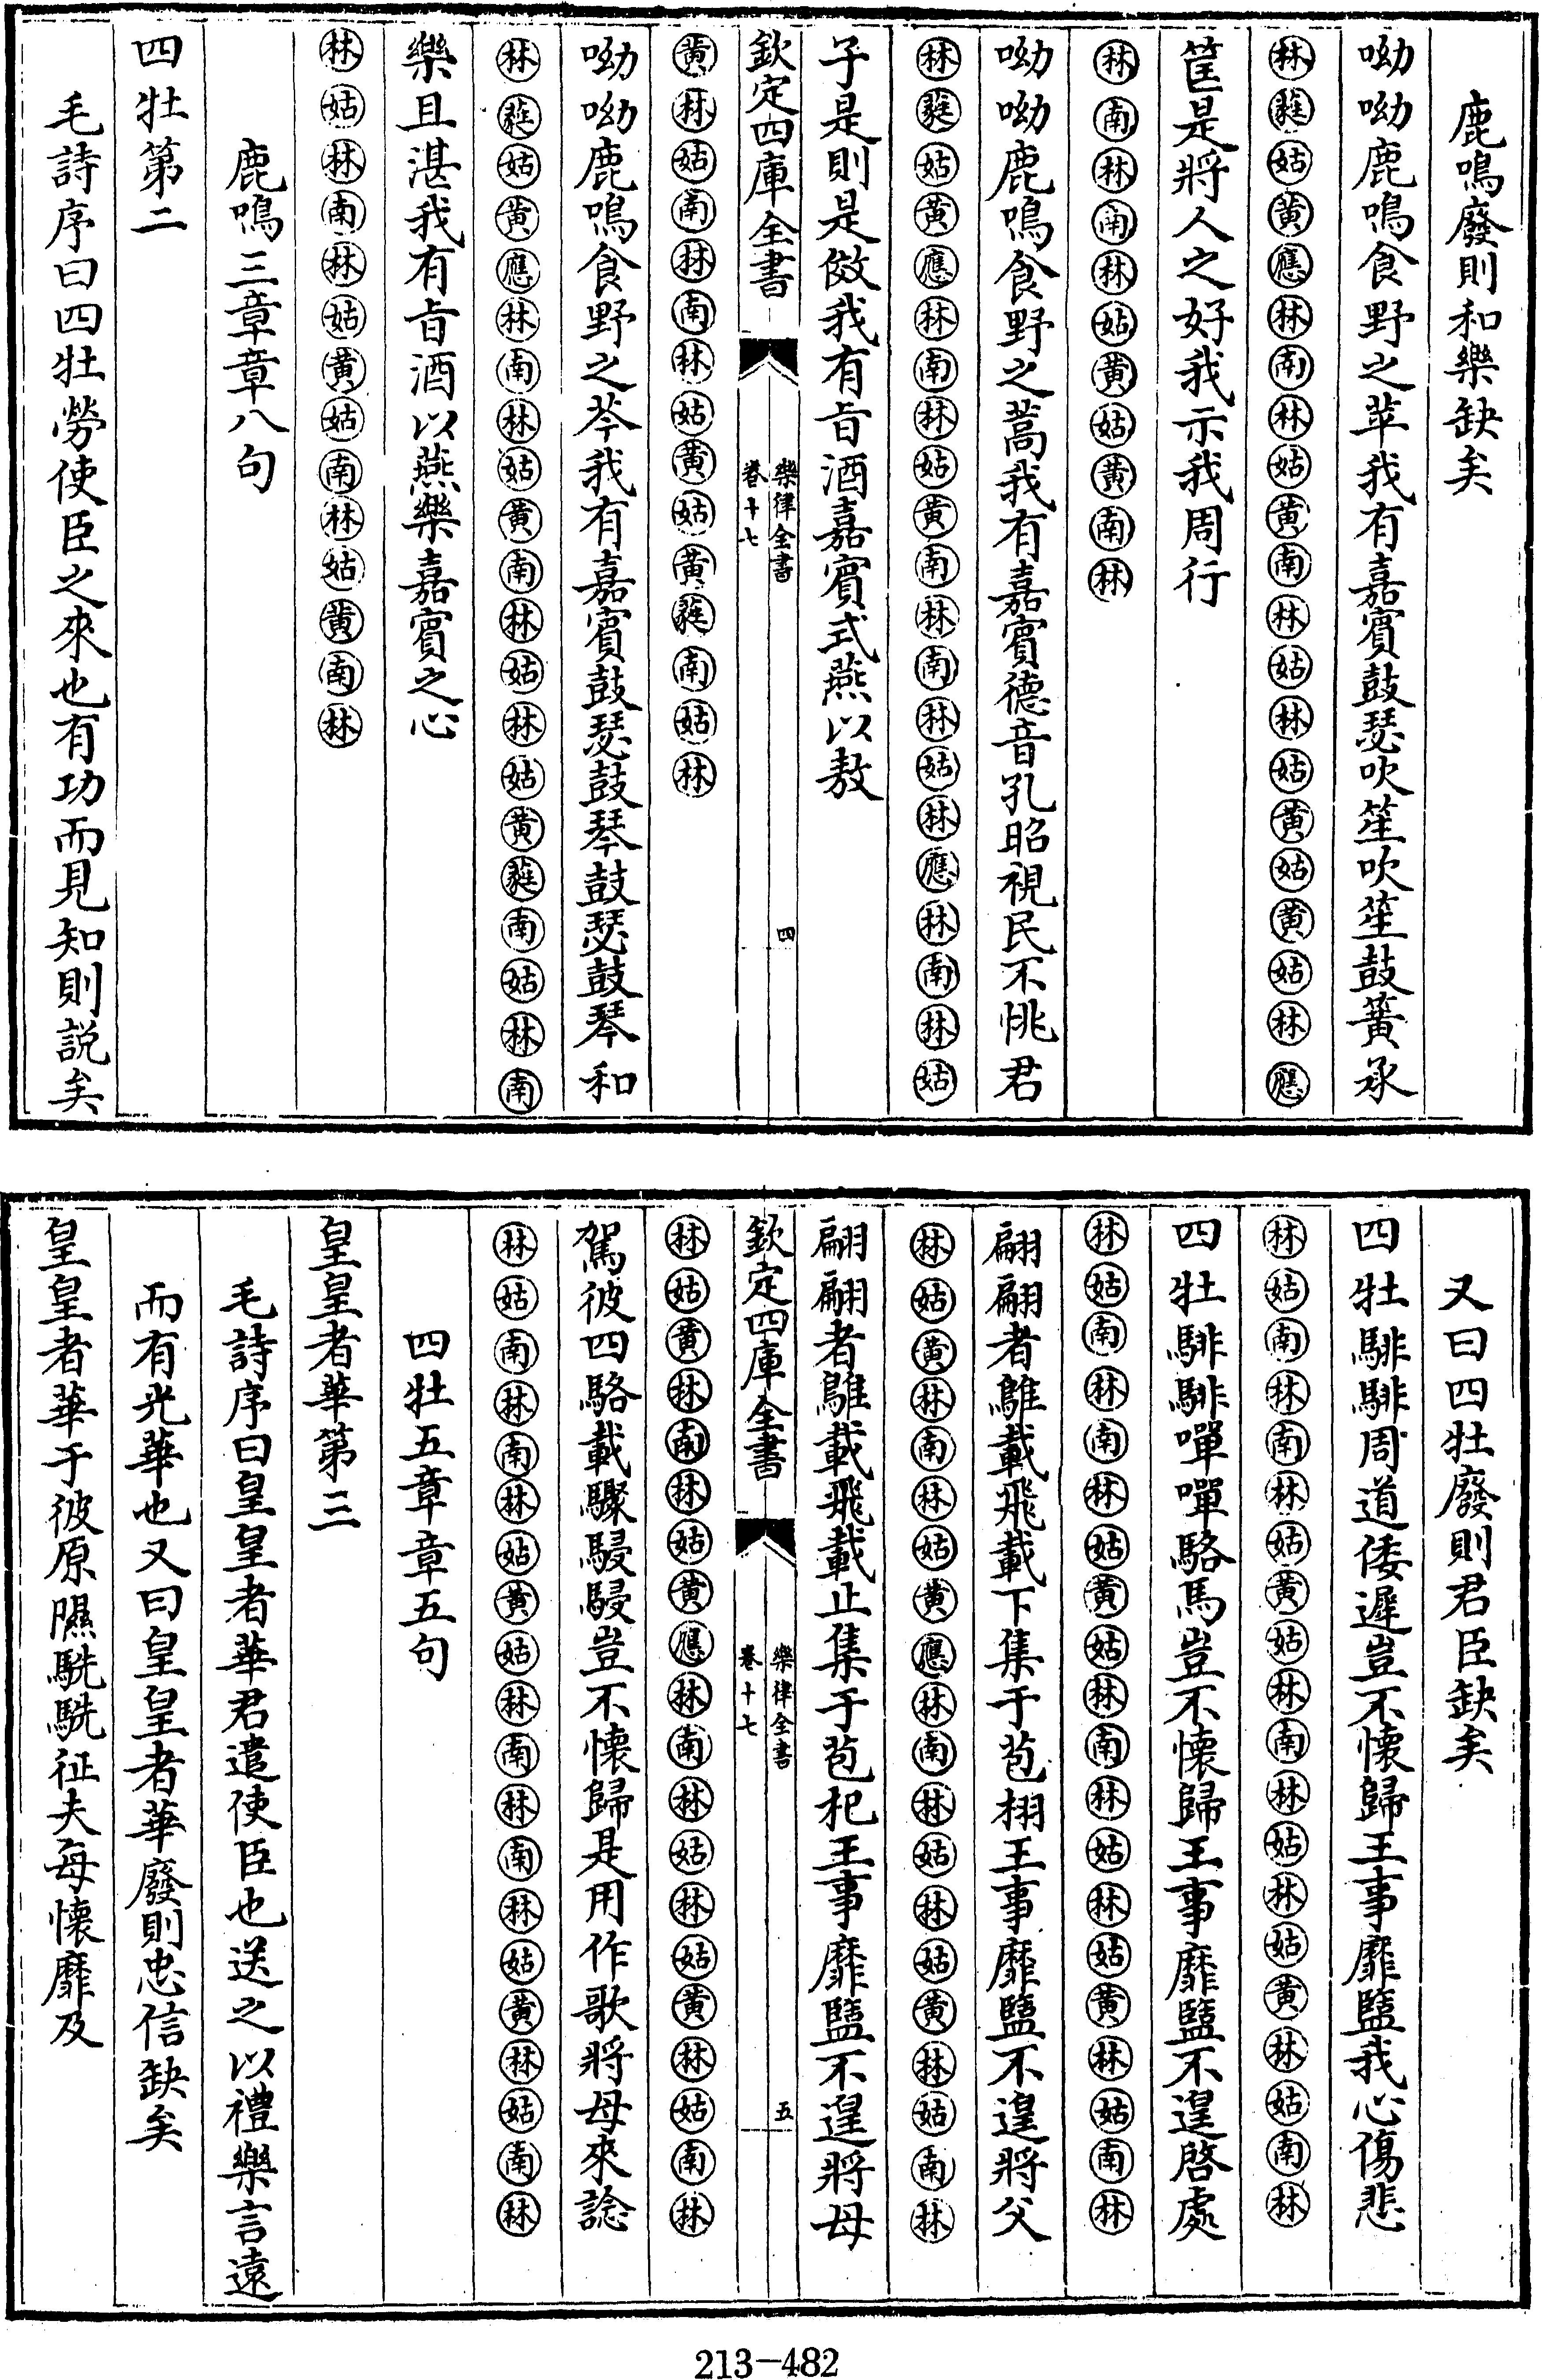 鹿鳴廢則和樂缺矣
呦呦鹿鳴食野之苹我有嘉賓鼓瑟吹笙吹笙鼓簧承
林蕤姑黄應林南林姑黄南林姑林姑黄姑黄姑林應
筐是將人之好我示我周行
林南林南林姑黄姑黄南林
呦呦鹿鳴食野之蒿我有嘉賓德音孔昭視民不恌君
林蕤姑黄應林南林姑黄南林南林姑林應林南林姑
子是則是傚我有旨酒嘉賓式燕以敖
欽定四庫全書
樂律全書
卷十七
四
黄林姑南林南林姑黄姑黄蕤南姑林
呦呦鹿鳴食野之芩我有嘉賓鼓瑟鼓琴鼓瑟鼓琴和
林蕤姑黄應林南林姑黄南林姑林姑黄蕤南姑林南
樂且湛我有旨酒以燕樂嘉賓之心
林姑林南林姑黄姑南林姑黄南林
鹿鳴三章章八句
四牡第二
毛詩序曰四牡勞使臣之來也有功而見知則説矣
又曰四牡廢則君臣缺矣
四牡騑騑周道倭遲豈不懷歸王事靡盬我心傷悲
林姑南林南林姑黄姑林南林姑林姑黄林姑南林
四牡騑騑嘽嘽駱馬豈不懷歸王事靡盬不遑啓處
林姑南林南林姑黄姑林南林姑林姑黄林姑南林
翩翩者鵻載飛載下集于苞栩王事靡盬不遑將父
林姑黄林南林姑黄應林南林姑林姑黄林姑南林
翩翩者鵻載飛載止集于苞杞王事靡盬不遑將母
欽定四庫全書
樂律全書
卷十七
五
林姑黄林南林姑黄應林南林姑林姑黄林姑南林
駕彼四駱載驟駸駸豈不懷歸是用作歌將母來諗
林姑南林南林姑黄姑林南林南林姑黄林姑南林
四牡五章章五句
皇皇者華第三
毛詩序曰皇皇者華君遣使臣也送之以禮樂言遠
而有光華也又曰皇皇者華廢則忠信缺矣
皇皇者華于彼原隰駪駪征夫每懷靡及
213-482